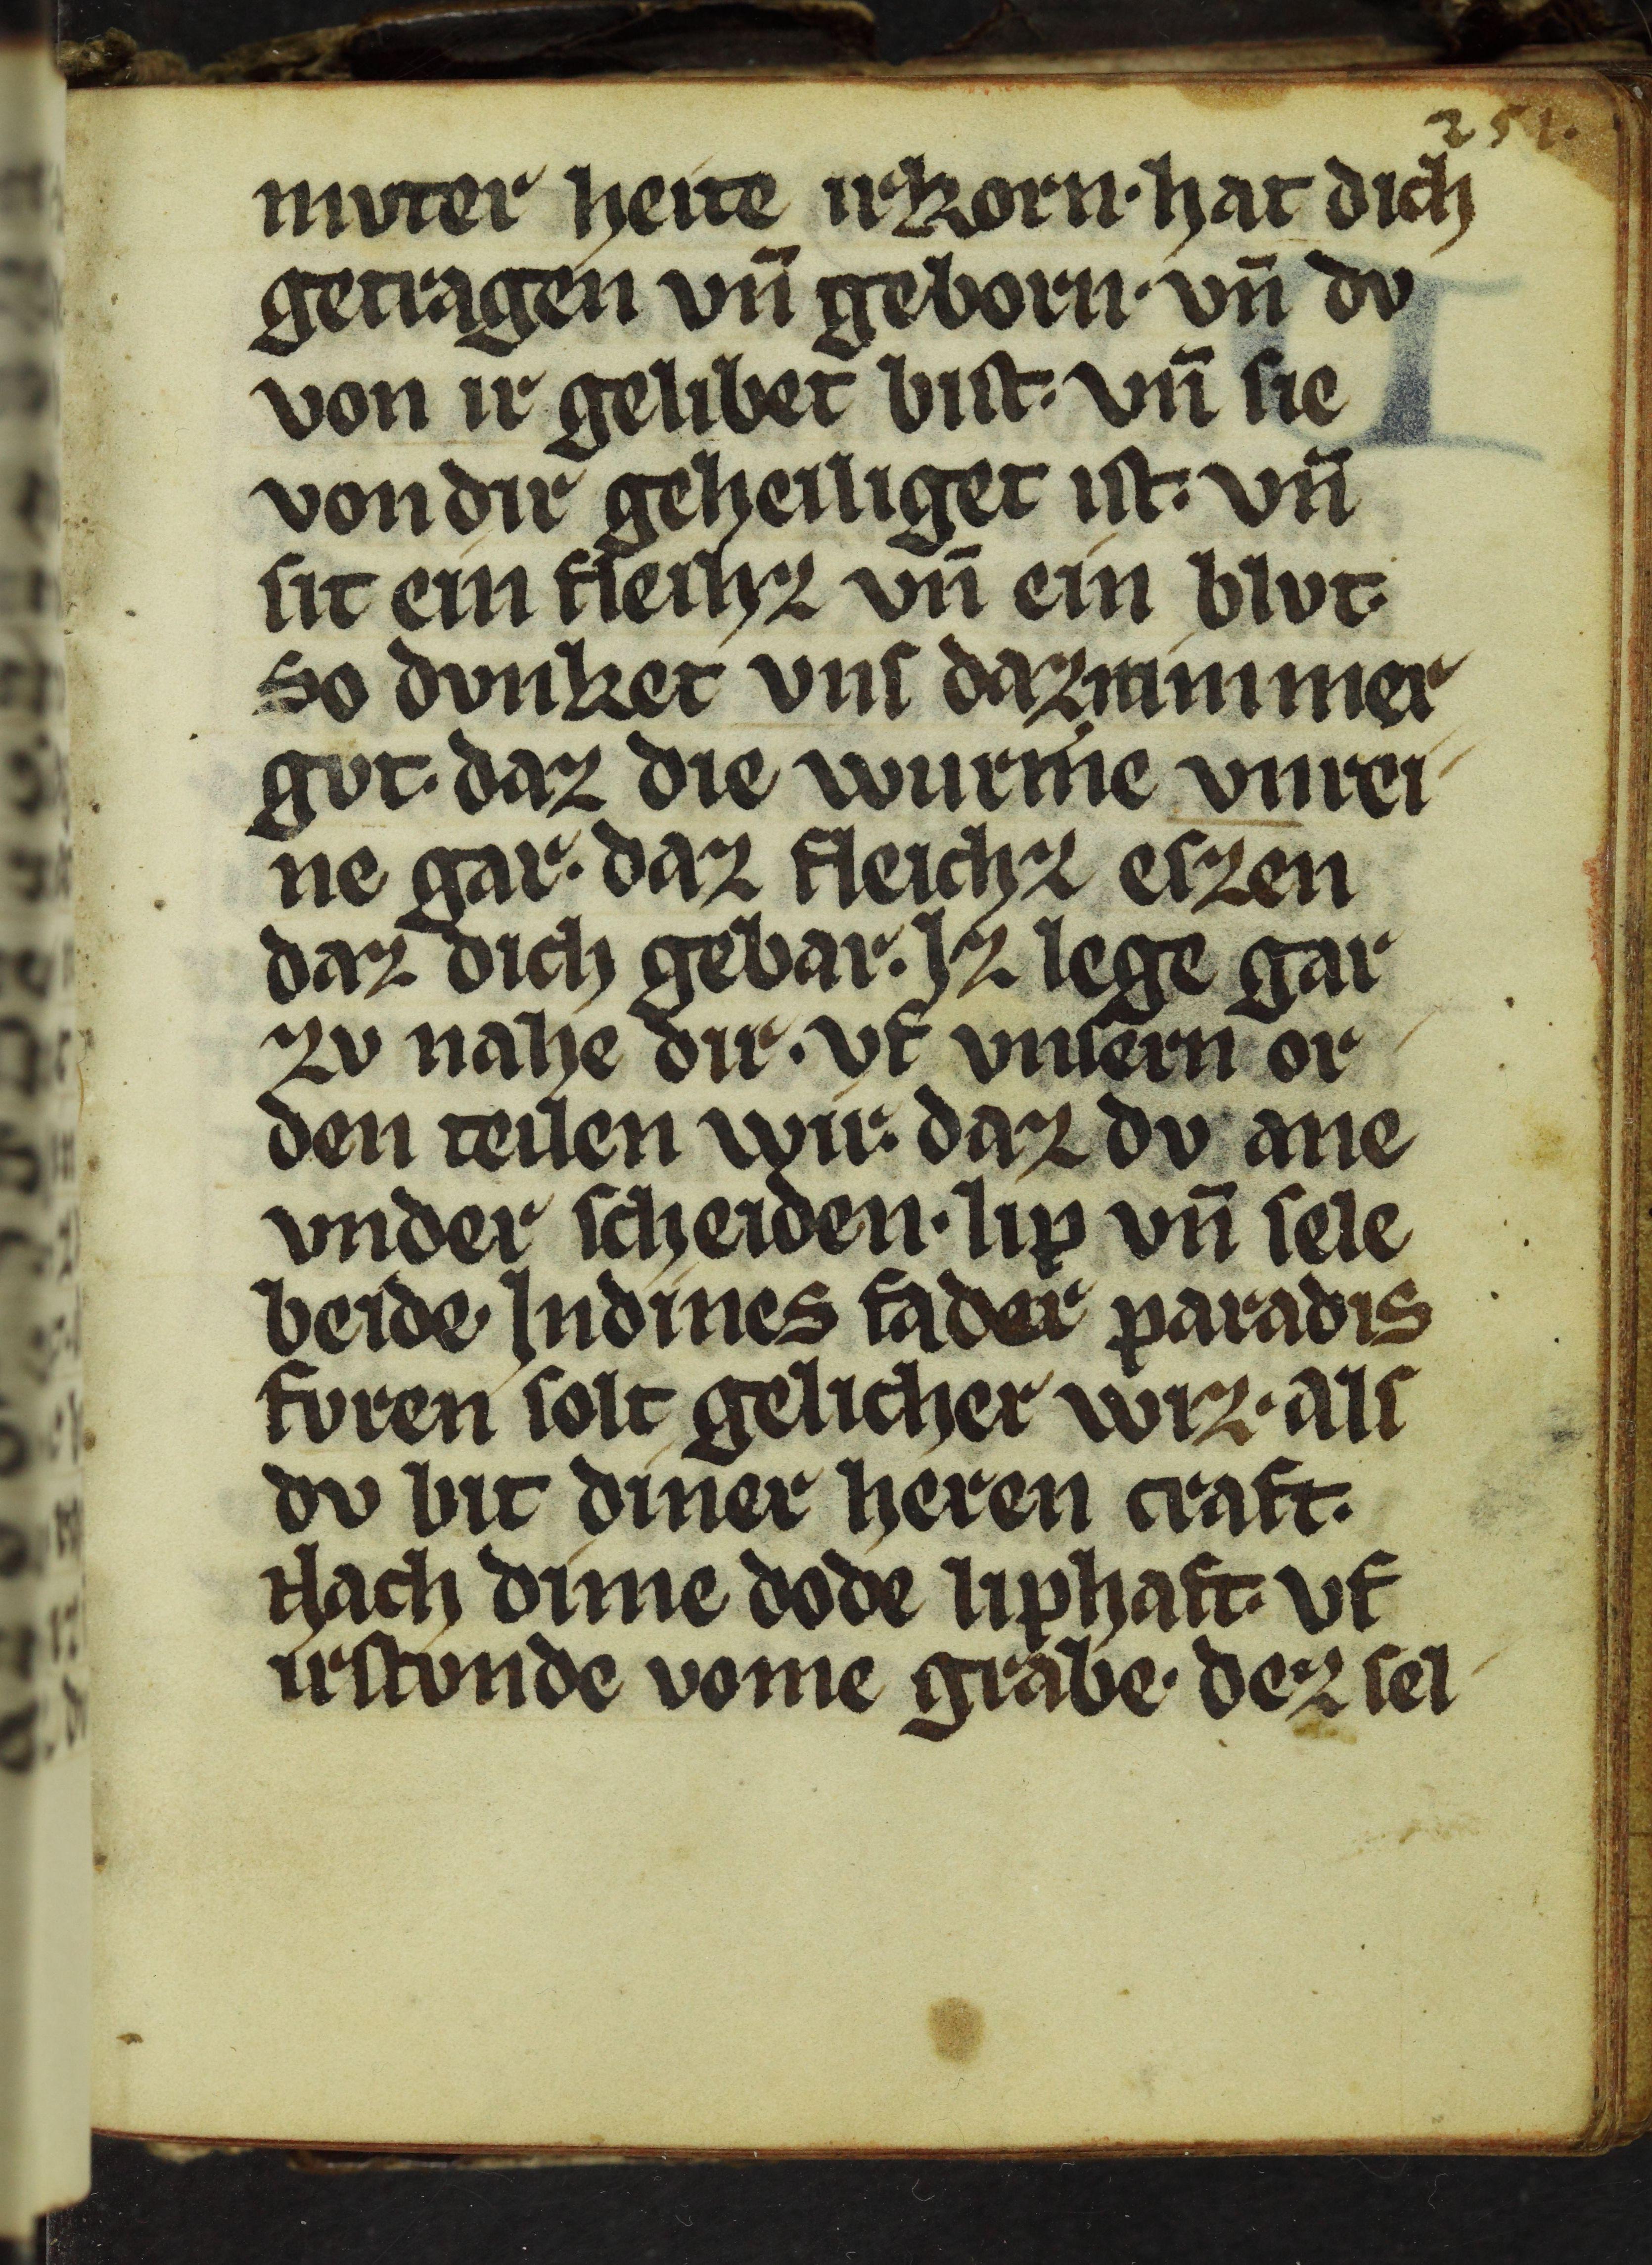 251.
mvter heite irkorn·hat dich
getragen vn̄ geborn· vn̄ dv
von ir gelibet bist· vn̄ sie
von dir geheiliget ist· vn̄
sit ein fleihz vn̄ ein blvt·
So dvnket vns daz nimmer
gvt· daz die wurme vnrei
ne gar· daz fleichz eszen
daz dich gebar· Iz lege gar
zv nahe dir· vf vnsern or
den teilen wir· daz dv ane
vnder scheiden· lip vn̄ sele
beide· Indines fader paradis
fvren solt gelicher wiz· als
dv bit diner heren craft·
Nach dime dode liphaft· vf
irstvnde vome grabe· dez sel